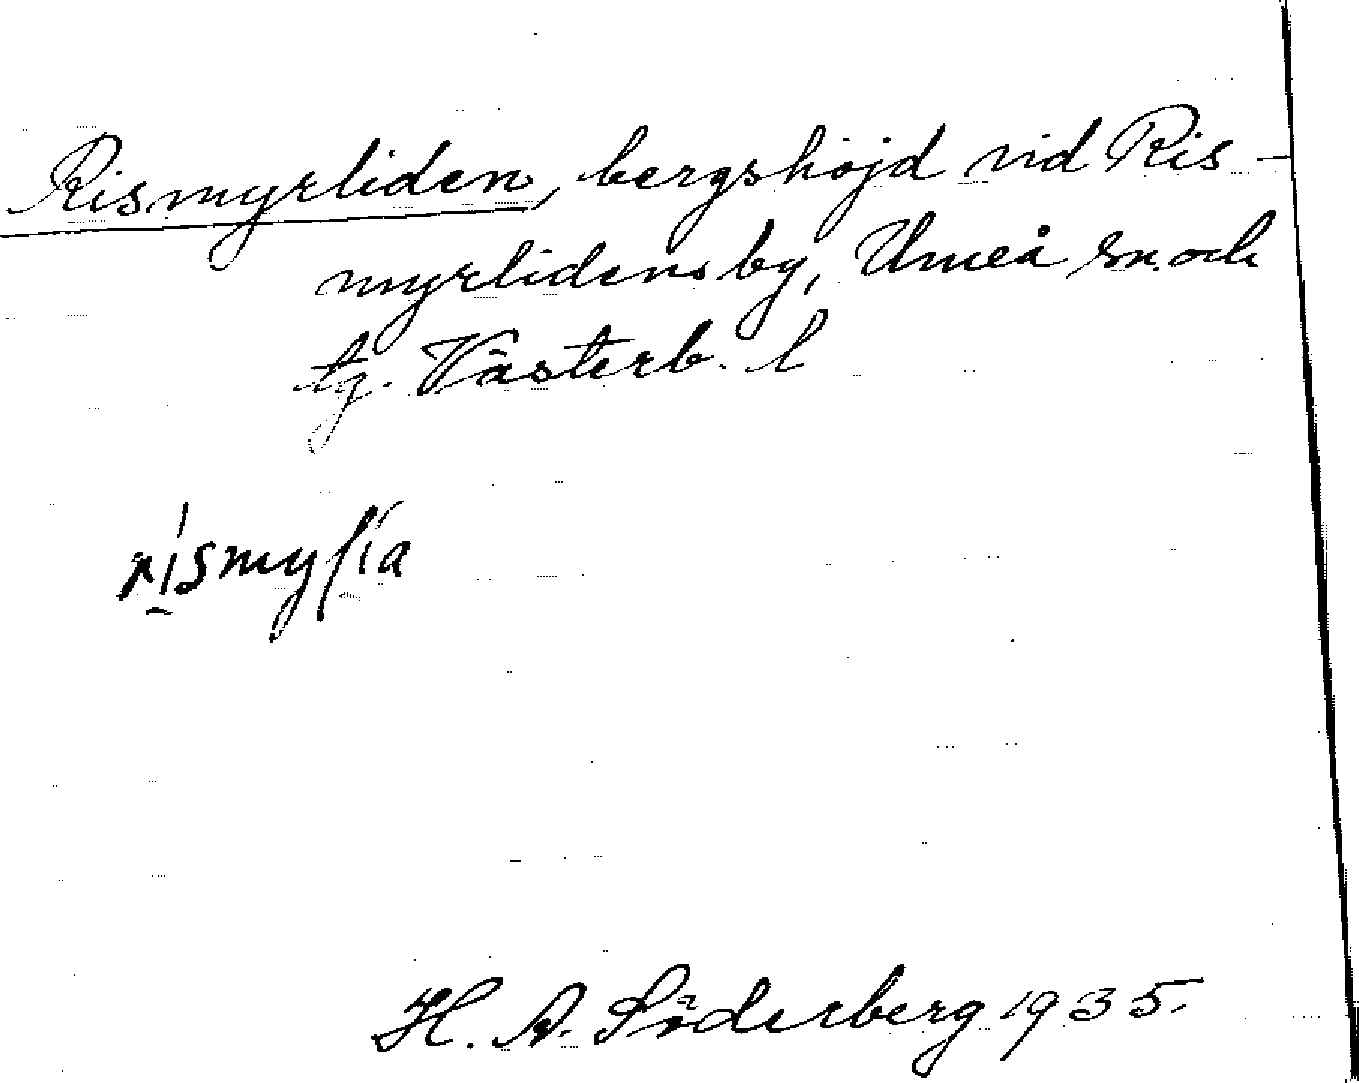 Rismyrliden, bergshöjd vid Ris-
myrlidens by, Umeå sn. och
tg. Västerb. l
rismylia
H. A. Söderberg 1935.